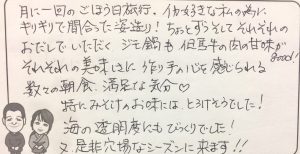 月に一回のごほうび旅行。イカ好きな私の為に
ギリギリで間合った姿造り！ちょっとずつそしてそれぞれの
おだしでいただく ジモ鍋も 但馬牛の肉の甘味が
good!
それぞれの美味しさに作り手の心を感じられる
数々の朝食、満足な気分♡
特にみそ汁のお味には とろけそうでした！
海の透明度にもびっくりでした！
又、是非穴場なシーズンに来ます!!